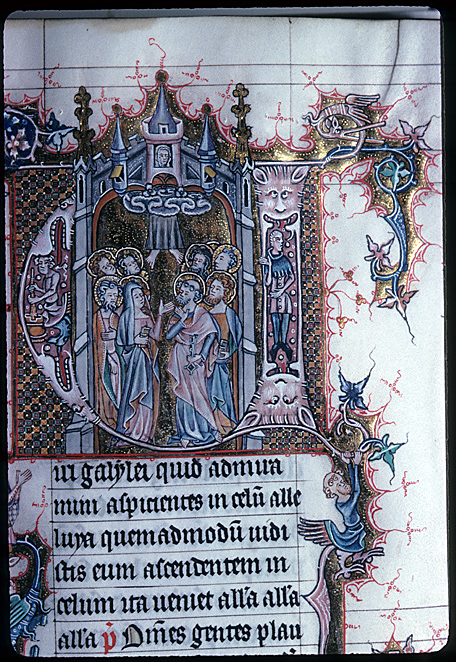 Viri galylei quid admira
mini aſpicientes in celū alle
luya quemadmodū uidi
ſtis eum aſcendentem in
celum ita ueniet alła alła
alła p̄ Om̄es gentes plau